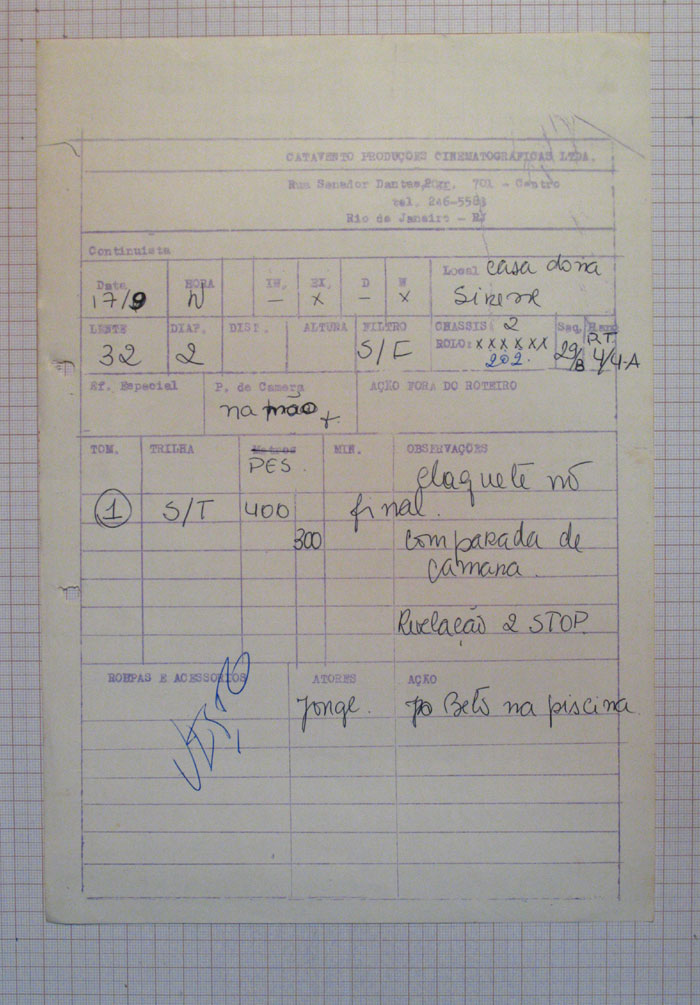 CATAVENTO PRODUÇÕES CINEMATOGRÁFICAS LTDA.
Rua Senador Dantas, 20gr. 701 - Centro
tel. 246-5583
Rio de Janeiro - RJ
Continuista
Data HORA IN. EX. D N Local casa dona
17/9 N — x — x Sirene
LENTE DIAF. DIST. ALTURA FILTRO CHASSIS: 2 Seq.
32 2 S/F ROLO: x x x x x x 29/B R.T.
202. 4/4-A
Ef. Especial P. de Camera AÇÃO FORA DO ROTEIRO
na mão
TOM. TRILHA Metros MIN. OBSERVAÇÕES
PES. claquete no
1 S/T 400 final.
300 com parada de
câmara.
Revelação 2 STOP.
ROUPAS E ACESSORIOS ATORES AÇÃO
Jorge. Beto na piscina